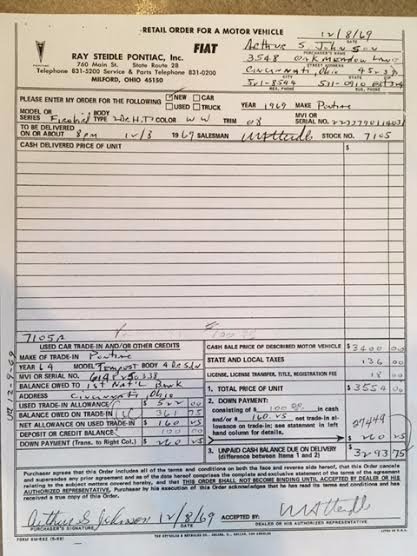 RETAIL ORDER FOR A MOTOR VEHICLE
12/8/69
DATE
PONTIAC
FIAT
Arthur S Johnson
PURCHASER'S NAME
RAY STEIDLE PONTIAC, Inc.
760 Main St. State Route 28
Telephone 831-5200 Service & Parts Telephone 831-0200
MILFORD, OHIO 45150
3548 Oak Meadow Lane
STREET ADDRESS
Cincinnati, Ohio
CITY STATE
RES. PHONE BUS. PHONE
PLEASE ENTER MY ORDER FOR THE FOLLOWING
NEW CAR
USED TRUCK
YEAR 1969 MAKE Pontiac
MODEL OR SERIES Firebird BODY TYPE 2Dr. H.T. COLOR WW TRIM 08 MVI OR SERIAL NO.
TO BE DELIVERED ON OR ABOUT 8pm 12/8 1969 SALESMAN STOCK NO. 7105
CASH DELIVERED PRICE OF UNIT $
7105A
USED CAR TRADE-IN AND/OR OTHER CREDITS
MAKE OF TRADE-IN Pontiac
YEAR 64 MODEL Tempest BODY 4 Dr Sdn
MVI OR SERIAL NO.
BALANCE OWED TO 1st Nat'l Bank
ADDRESS Cincinnati, Ohio
USED TRADE-IN ALLOWANCE $
BALANCE OWED ON TRADE-IN 361 75
NET ALLOWANCE ON USED TRADE-IN $ 160 25
DEPOSIT OR CREDIT BALANCE 100 00
DOWN PAYMENT (Trans. to Right Col.) $ 260 25
CASH SALE PRICE OF DESCRIBED MOTOR VEHICLE $ 3400 00
STATE AND LOCAL TAXES 136 00
LICENSE, LICENSE TRANSFER, TITLE, REGISTRATION FEE 18 00
1. TOTAL PRICE OF UNIT $ 3554 00
2. DOWN PAYMENT:
consisting of $ 100.00 in cash
and/or $ 160 25 net trade-in al-
lowance on trade-in; see statement in left
hand column for details.
$ 260 25
3. UNPAID CASH BALANCE DUE ON DELIVERY
(Difference between Items 1 and 2) $ 3293 75
Purchaser agrees that this Order includes all of the terms and conditions on both the face and reverse side hereof, that this Order cancels
and supersedes any prior agreement and as of the date hereof comprises the complete and exclusive statement of the terms of the agreement
relating to the subject matters covered hereby, and that THIS ORDER SHALL NOT BECOME BINDING UNTIL ACCEPTED BY DEALER OR HIS
AUTHORIZED REPRESENTATIVE. Purchaser by his execution of this Order acknowledges that he has read its terms and conditions and has
received a true copy of this Order.
Arthur S Johnson 12/8/69 ACCEPTED BY:
PURCHASER'S SIGNATURE DATE DEALER OR HIS AUTHORIZED REPRESENTATIVE